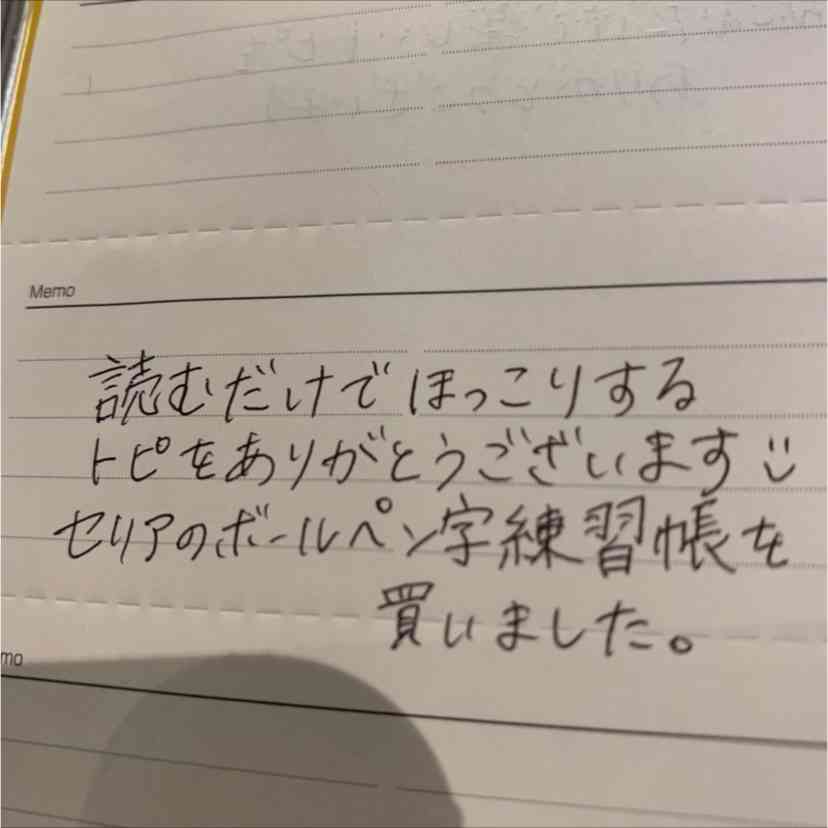 Memo
読むだけでほっこりする
トピをありがとうございます
セリアのボールペン字練習帳を
買いました。
mo